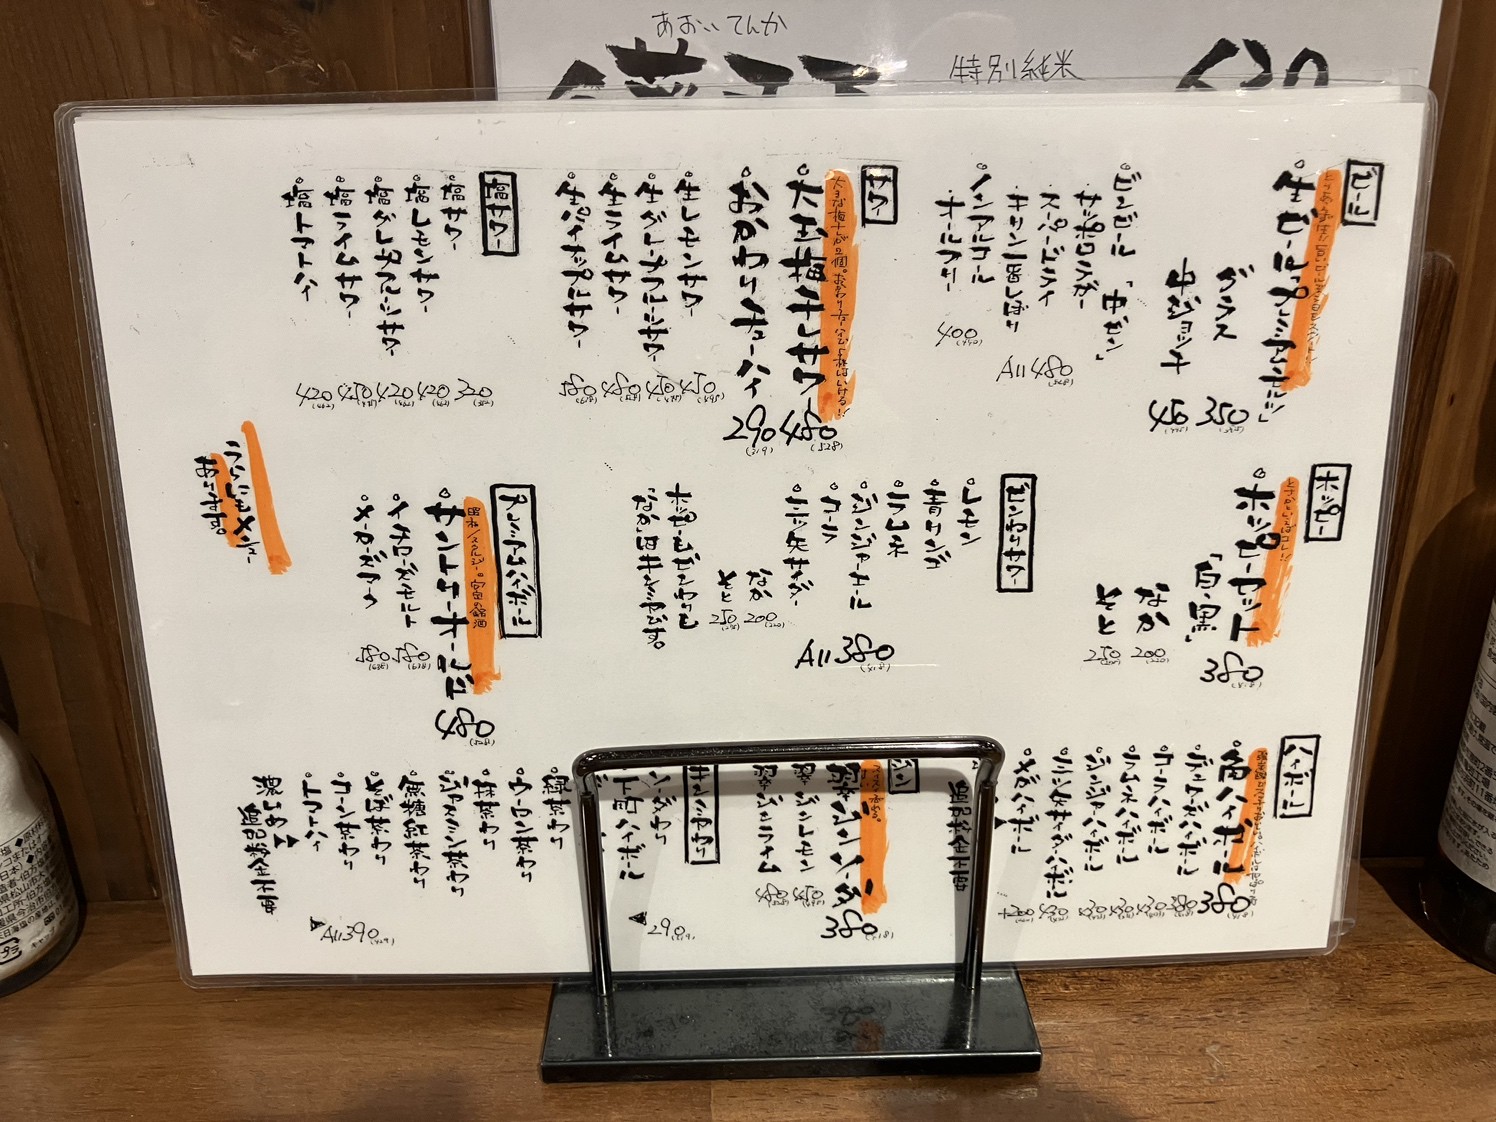 あおいてんか
特別純米
630
ビール
生ビール「プレミアムモルツ」
グラス 350
中ジョッキ 450
ビンビール「中ビン」
・サッポロラガー
・スーパードライ
・キリン一番しぼり
All 480 (528)
ノンアルコール
・オールフリー
400 (440)
サワー
大玉梅干しサワー 480 (528)
おかわりチューハイ 290 (319)
生レモンサワー 450 (495)
生グレープフルーツサワー 450
生ライムサワー 480 (528)
生パイナップルサワー 580 (638)
塩サワー
塩サワー 320 (352)
塩レモンサワー 420 (462)
塩グレープフルーツサワー 420 (462)
塩ライムサワー 450
塩トマトハイ 420 (462)
ホッピー
ホッピーセット
「白・黒」 380 (418)
なか 200 (220)
そと 250
ビンわりサワー
レモン
青リンゴ
ラムネ
ジンジャーエール
コーラ
三ツ矢サイダー
All 380 (418)
なか 200 (220)
そと 250
ホッピーもビンわりも
「なか」はキンミヤです。
プレミアムハイボール
サントリーオールド 480 (528)
イチローズモルト 580 (638)
メーカーズマーク 580 (638)
うらにもメニュー
あります。
ハイボール
角ハイボール 380 (418)
ジムビームハイボール 380
コーラハイボール 430
ラムネハイボール 430
ジンジャーハイボール 430
三ツ矢サイダーハイボール 430
メガハイボール +200
ジン
翠ジンソーダ 380 (418)
翠ジンレモン 450
翠ジンライム 480
ソーダわり
下町ハイボール
290 (319)
緑茶わり
ウーロン茶わり
抹茶わり
ジャスミン茶わり
無糖紅茶わり
そば茶わり
コーン茶わり
トマトハイ
All 390 (429)
濃いめ